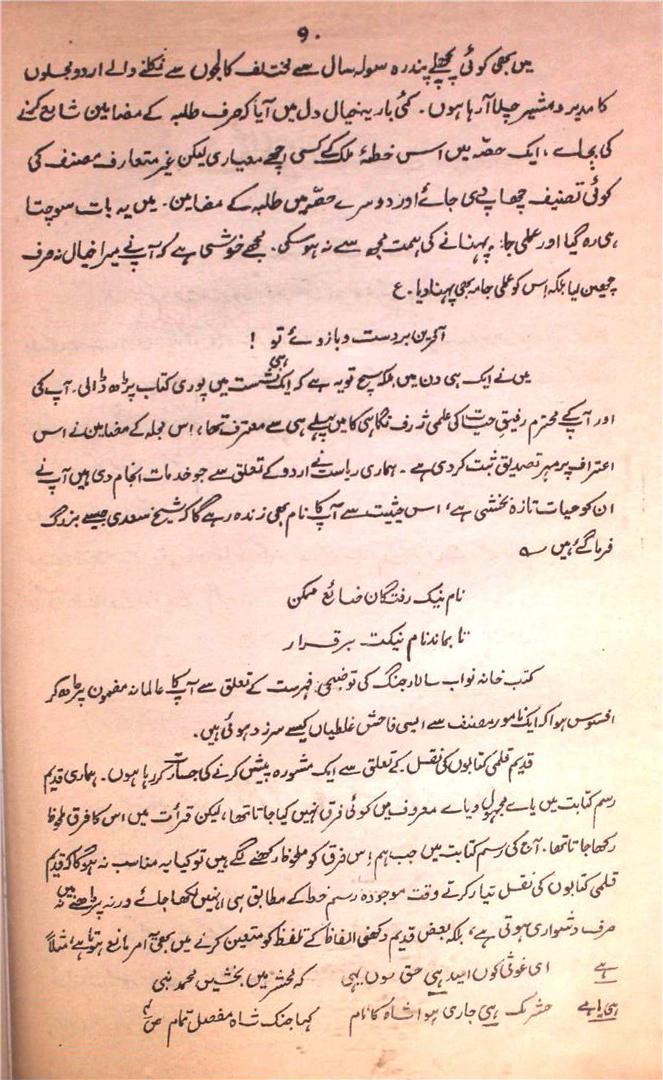 ۹۰
میں بھی کوئی پچھلے پندرہ سولہ سال سے مختلف کالجوں سے نکلنے والے اردو مجلوں
کا مدیر و مشیر چلا آرہا ہوں۔ کئی بار یہ خیال دل میں آیا کہ صرف طلبہ کے مضامین شایع کرنے
کی بجاے، ایک حصہ میں اس خطۂ ملک کے کسی اچھے معیاری لیکن غیر متعارف مصنف کی
کوئی تصنیف چھاپ دی جائے اور دوسرے حصہ میں طلبہ کے مضامین۔ میں یہ بات سوچتا
ہی رہ گیا اور عملی جامہ پہنانے کی ہمت مجھ سے نہ ہو سکی۔ مجھے خوشی ہے کہ آپ نے میرا خیال نہ صرف
چھین لیا بلکہ اس کو عملی جامہ بھی پہنا دیا۔ ع
آفرین بر دست و بازوے تو !
میں نے ایک ہی دن میں بلکہ سچ تو یہ ہے کہ ایک ہی نشست میں پوری کتاب پڑھ ڈالی۔ آپ کی
اور آپ کے محترم رفیقِ حیات کی علمی ژرف نگاہی کا میں پہلے ہی سے معترف تھا، اس مجلہ کے مضامین نے اس
اعتراف پر مہر تصدیق ثبت کر دی ہے۔ ہماری ریاست نے اردو کے تعلق سے جو خدمات انجام دی ہیں آپ نے
ان کو حیات تازہ بخشی ہے، اس حیثیت سے آپ کا نام بھی زندہ رہے گا کہ شیخ سعدی جیسے بزرگ
فرما گئے ہیں ؎
نام نیک رفتگان ضائع مکن
تا بماند نام نیکت برقرار
کتب خانہ نواب سالار جنگ کی توضیحی فہرست کے تعلق سے آپ کا عالمانہ مضمون پڑھ کر
افسوس ہوا کہ ایک نامور مصنف سے ایسی فاحش غلطیاں کیسے سرزد ہوئی ہیں۔
قدیم قلمی کتابوں کی نقل کے تعلق سے ایک مشورہ پیش کرنے کی جسارت کر رہا ہوں۔ ہماری قدیم
رسم کتابت میں یاے مجہول و یاے معروف میں کوئی فرق نہیں کیا جاتا تھا، لیکن قرأت میں اس کا فرق ملحوظ
رکھا جاتا تھا۔ آج کی رسم کتابت میں جب ہم اس فرق کو ملحوظ رکھنے لگے ہیں تو کیا یہ مناسب نہ ہوگا کہ قدیم
قلمی کتابوں کی نقل تیار کرتے وقت موجودہ رسم خط کے مطابق ہی انہیں لکھا جائے ورنہ پڑھنے میں نہ
صرف دشواری ہوتی ہے، بلکہ بعض قدیم دکھنی الفاظ کے تلفظ کو متعین کرنے میں بھی امر مانع ہوتا ہے، مثلاً
ہے ای غوثی کوں امید ہی حق سوں یہی کہ محشر میں بخشیں محمد نبی
ہی یا ہے حشر تک ہی جاری ہوا شاہ کا نام کہا جنگ شاہ مفصل تمام ص